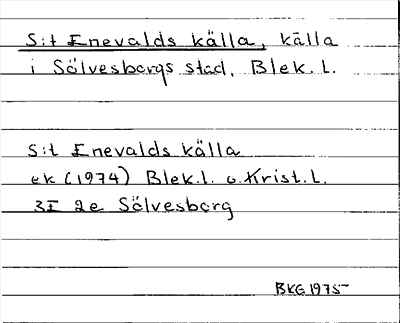 S:t Enevalds källa, källa
i Sölvesborgs stad, Blek. l.
S:t Enevalds källa
ek (1974) Blek.l. o. Krist.l.
3E 2e Sölvesborg
BKG 1975